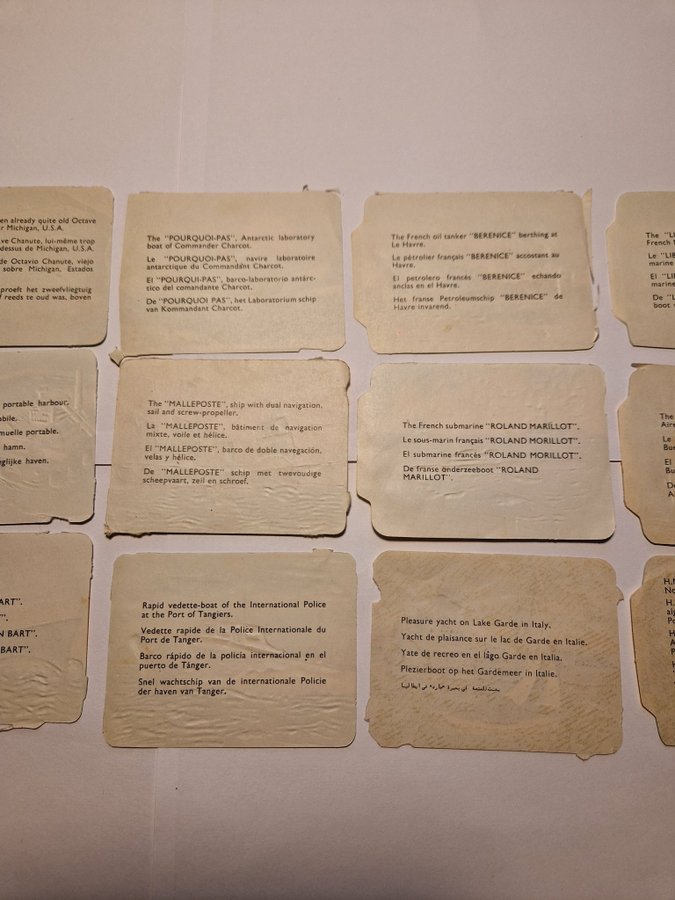 en already quite old Octave
r Michigan, U.S.A.
ve Chanute, lui-même trop
dessus de Michigan, U.S.A.
de Octavio Chanute, viejo
sobre Michigan, Estados
proeft het zweefvliegtuig
f reeds te oud was, boven
The "POURQUOI-PAS", Antarctic laboratory
boat of Commander Charcot.
Le "POURQUOI-PAS", navire laboratoire
antarctique du Commandant Charcot.
El "POURQUI-PAS", barco-laboratorio antárc-
tico del comandante Charcot.
De "POURQUOI PAS", het Laboratorium schip
van Kommandant Charcot.
The French oil tanker "BERENICE" berthing at
Le Havre.
Le pétrolier français "BERENICE" accostant au
Havre.
El petrolero francés "BERENICE" echando
anclas en el Havre.
Het franse Petroleumschip "BERENICE" de
Havre invarend.
The "LI
French
Le "LIB
marine
El "LI
marine
De "L
boot
portable harbour.
obile.
muelle portable.
hamn.
glijke haven.
The "MALLEPOSTE", ship with dual navigation,
sail and screw-propeller.
La "MALLEPOSTE", bâtiment de navigation
mixte, voile et hélice.
El "MALLEPOSTE", barco de doble navegación,
velas y hélice.
De "MALLEPOSTE" schip met twevoudige
scheepvaart, zeil en schroef.
The French submarine "ROLAND MARILLOT".
Le sous-marin français "ROLAND MORILLOT".
El submarine francés "ROLAND MORILLOT".
De franse onderzeeboot "ROLAND
MARILLOT".
The
Aire
Le
Bue
El
Bu
D
A
ART".
".
N BART".
BART".
Rapid vedette-boat of the International Police
at the Port of Tangiers.
Vedette rapide de la Police Internationale du
Port de Tanger.
Barco rápido de la policía internacional en el
puerto de Tánger.
Snel wachtschip van de internationale Policie
der haven van Tanger.
Pleasure yacht on Lake Garde in Italy.
Yacht de plaisance sur le lac de Garde en Italie.
Yate de recreo en el lágo Garde en Italia.
Plezierboot op het Gardemeer in Italie.
H.M
No
H.
alg
Po